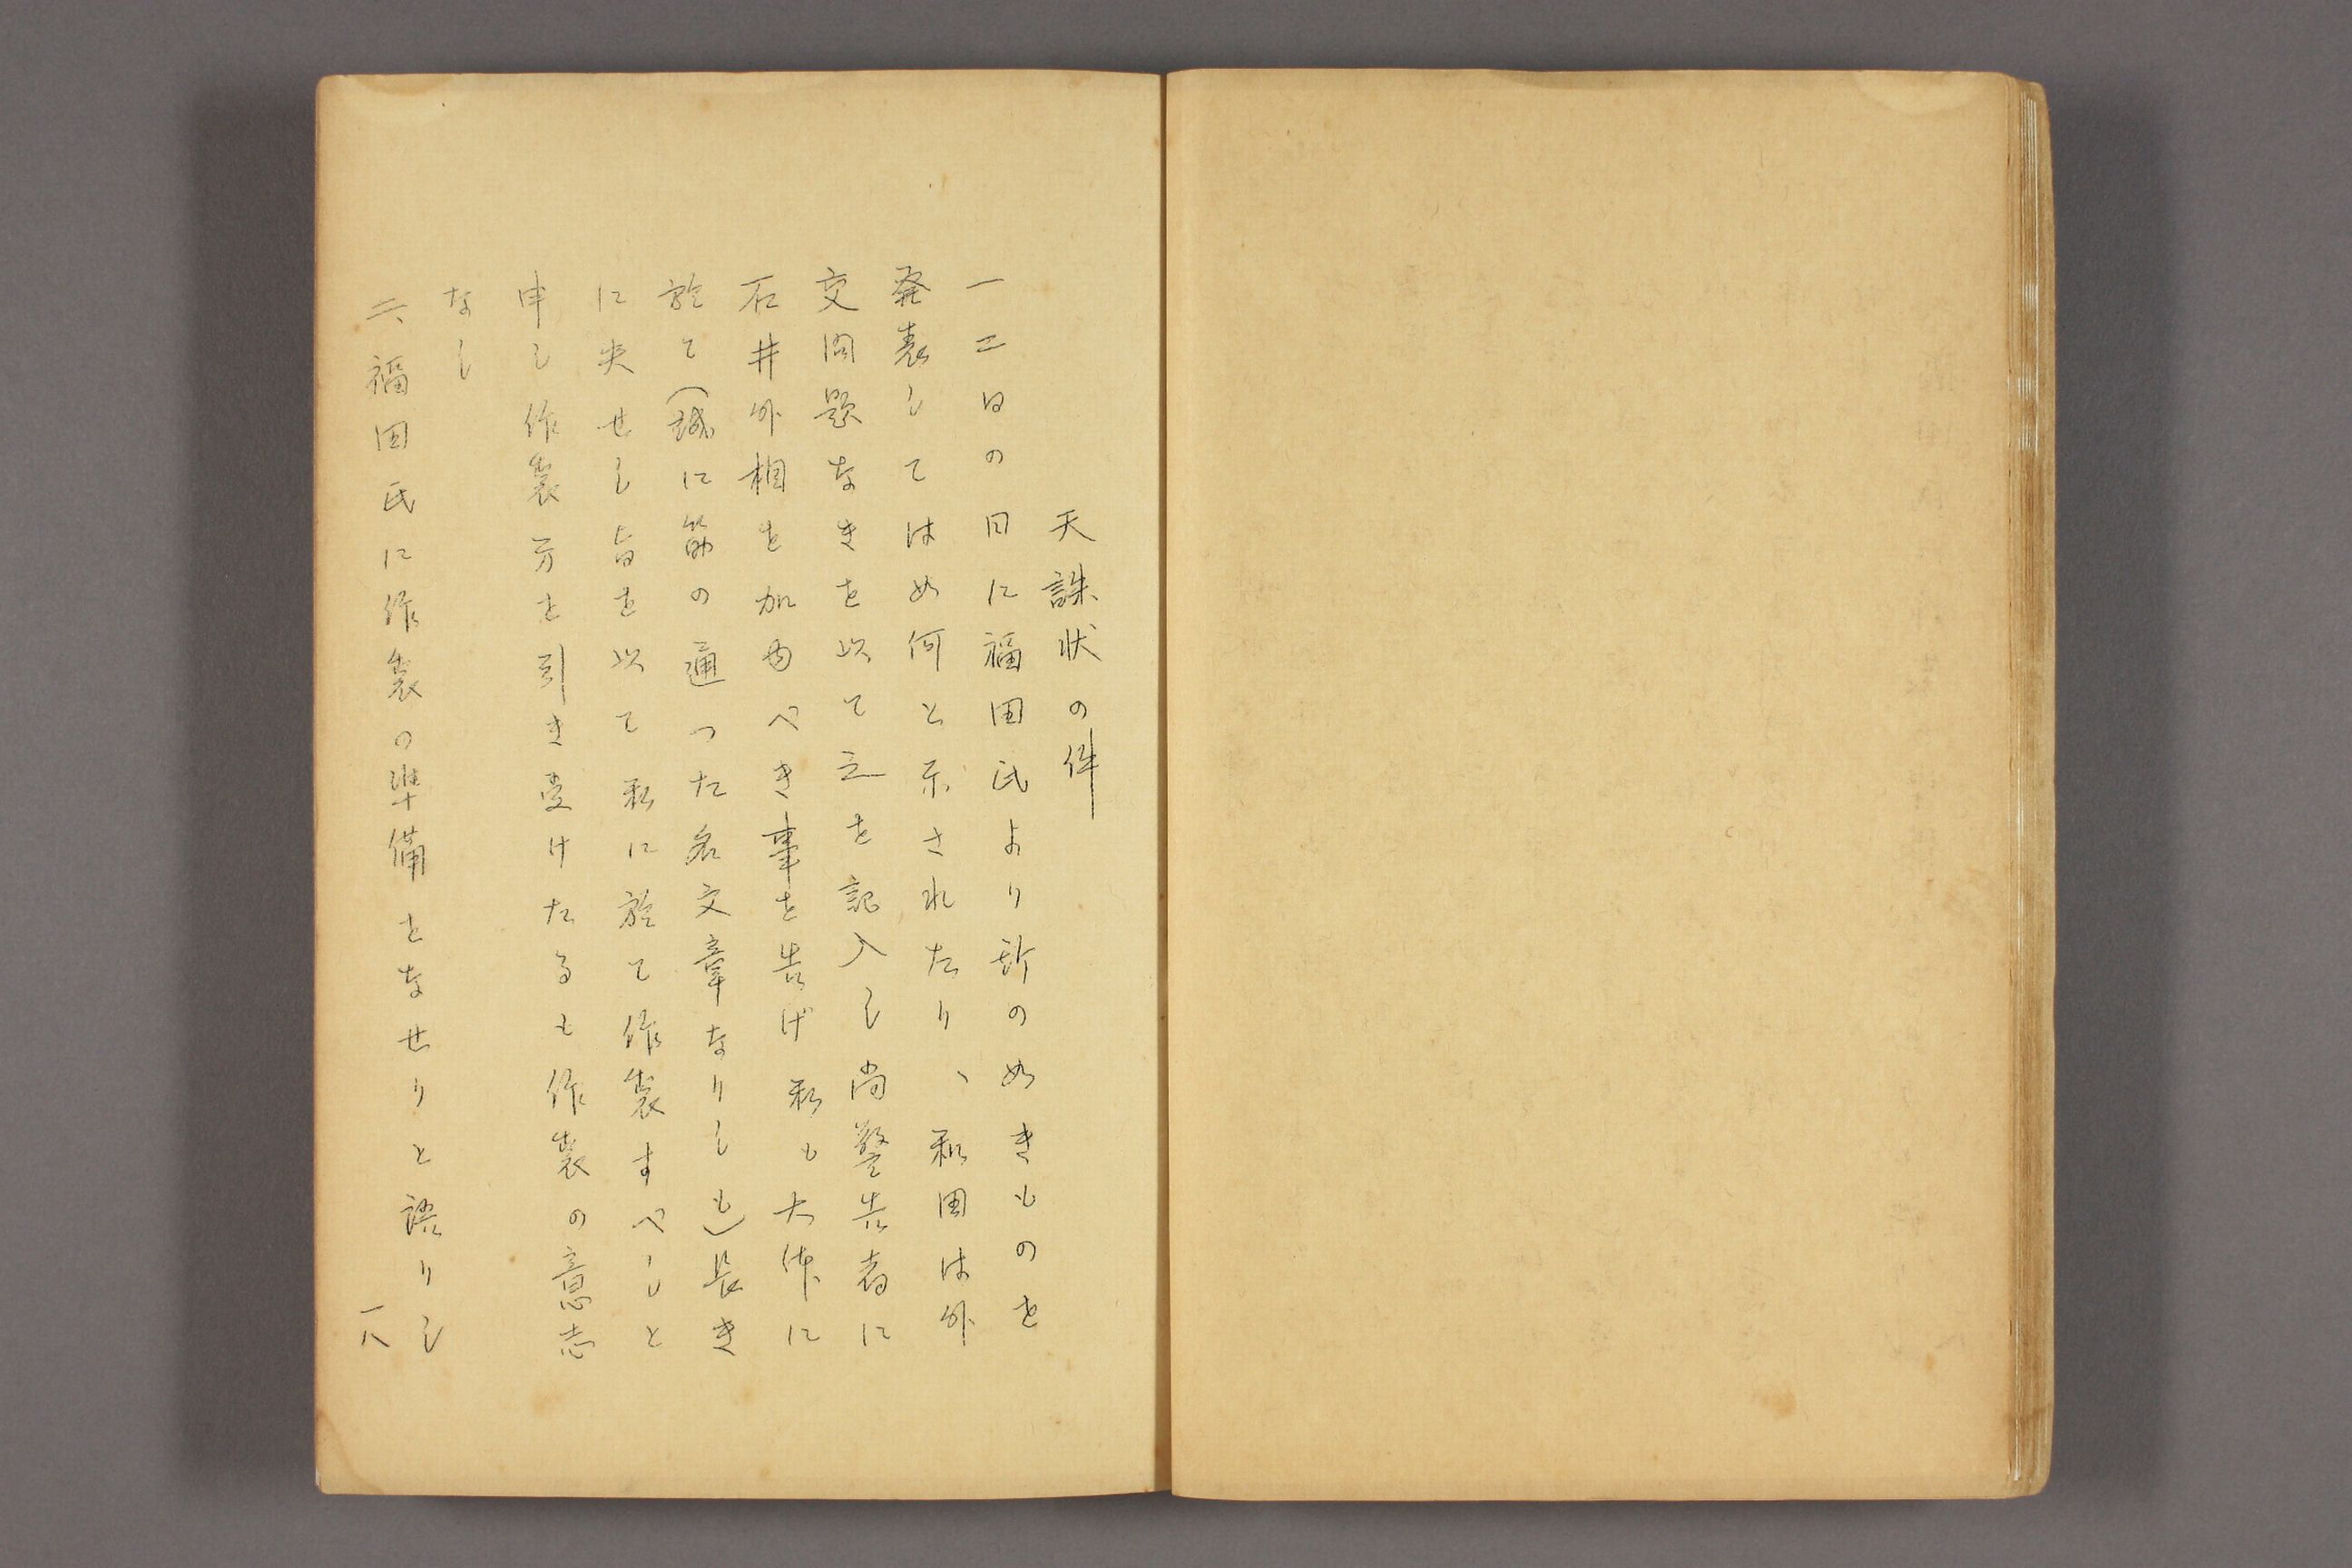 天誅状の件
一二日の日に福田氏より斯の如きものを
発表しては如何と示されたり、和田は外
交問題なきを以て之を記入し尚警告者に
石井外相を加ふべき事を告げ私も大体に
於て(誠に筋の通つた名文章なりしも)長き
に失せし旨を以て私に於て作製すべしと
申し作製方を引き受けたるも作製の意志
なし
二、福田氏に作製の準備をなせりと語りし
一八